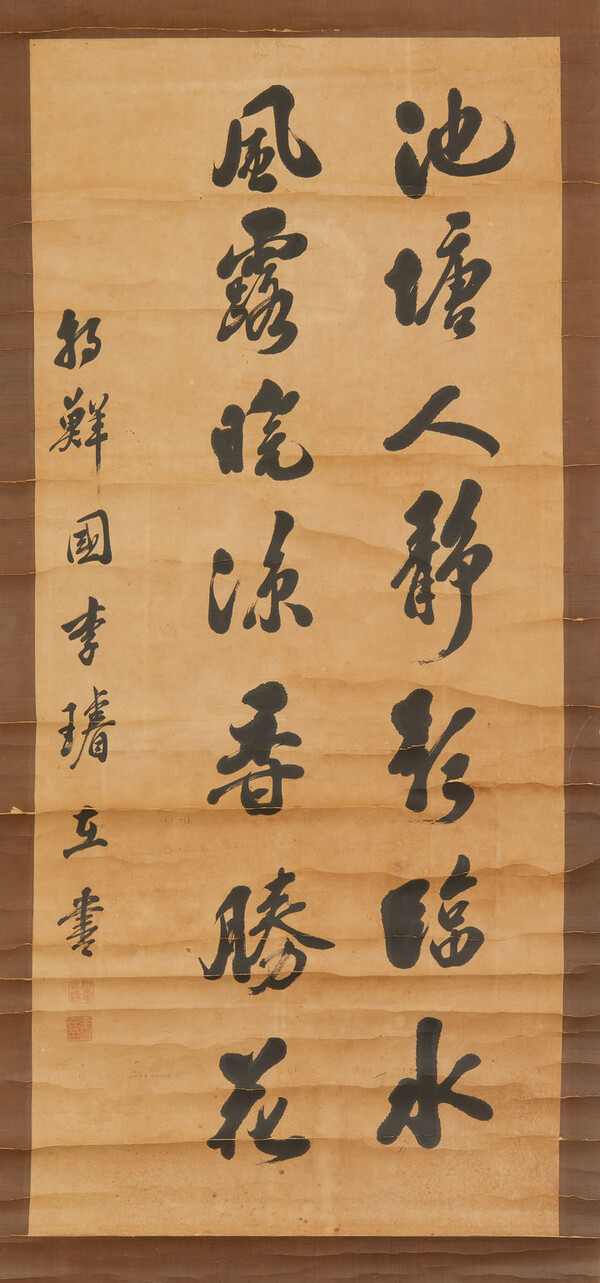 池塘人靜影臨水
風露晚涼香勝花
朝鮮國李璿在書